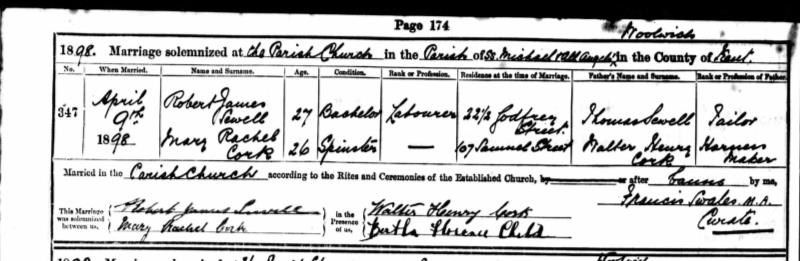 Page 174
Woolwich
1898. Marriage solemnized at the Parish Church in the Parish of St Michael & All Angels in the County of Kent.
No. When Married. Name and Surname. Age. Condition. Rank or Profession. Residence at the time of Marriage. Father's Name and Surname. Rank or Profession of Father.
347 April 9th 1898 Robert James Sewell 27 Bachelor Labourer 22½ Godfrey Street. Thomas Sewell Tailor
Mary Rachel Cork 26 Spinster — 107 Samuel Street Walter Henry Cork Harness Maker
Married in the Parish Church according to the Rites and Ceremonies of the Established Church, by or after banns by me,
Francis Swales M.A.
Curate.
This Marriage was solemnized between us, Robert James Sewell
Mary Rachel Cork
in the Presence of us, Walter Henry Cork
Bertha Florence Child